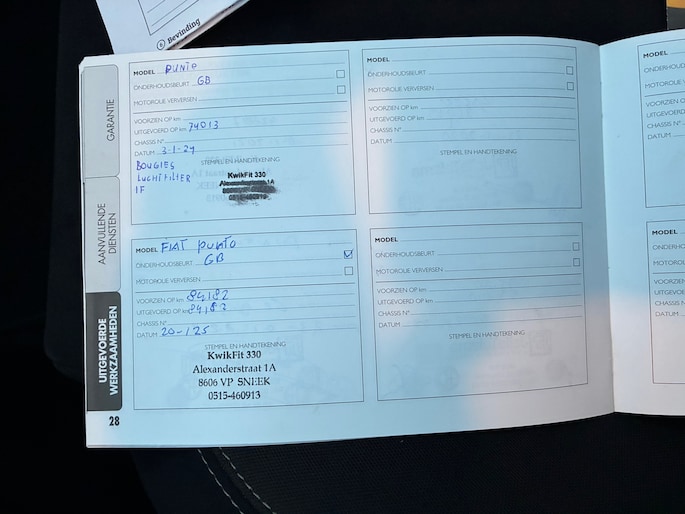 6 Bevinding
GARANTIE
AANVULLENDE
DIENSTEN
UITGEVOERDE
WERKZAAMHEDEN
28
MODEL PUNTO
ONDERHOUDSBEURT GB
MOTOROLIE VERVERSEN
VOORZIEN OP km
UITGEVOERD OP km 74013
CHASSIS N°
DATUM 3-1-24
STEMPEL EN HANDTEKENING
BOUGIES
LUCHTFILTER
IF
KwikFit 330
Alexanderstraat 1A
0515-460913
MODEL FIAT PUNTO
ONDERHOUDSBEURT GB
MOTOROLIE VERVERSEN
VOORZIEN OP km 84182
UITGEVOERD OP km 84182
CHASSIS N°
DATUM 20-1-25
STEMPEL EN HANDTEKENING
KwikFit 330
Alexanderstraat 1A
8606 VP SNEEK
0515-460913
MODEL
ONDERHOUDSBEURT
MOTOROLIE VERVERSEN
VOORZIEN OP km
UITGEVOERD OP km
CHASSIS N°
DATUM
STEMPEL EN HANDTEKENING
MODEL
ONDERHOUDSBEURT
MOTOROLIE VERVERSEN
VOORZIEN OP km
UITGEVOERD OP km
CHASSIS N°
DATUM
STEMPEL EN HANDTEKENING
MODEL
VOORZIEN OP
UITGEVOERD
CHASSIS N°
DATUM
MODEL
ONDERHO
MOTOROLI
VOORZIEN
UITGEVOE
CHASSIS N
DATUM